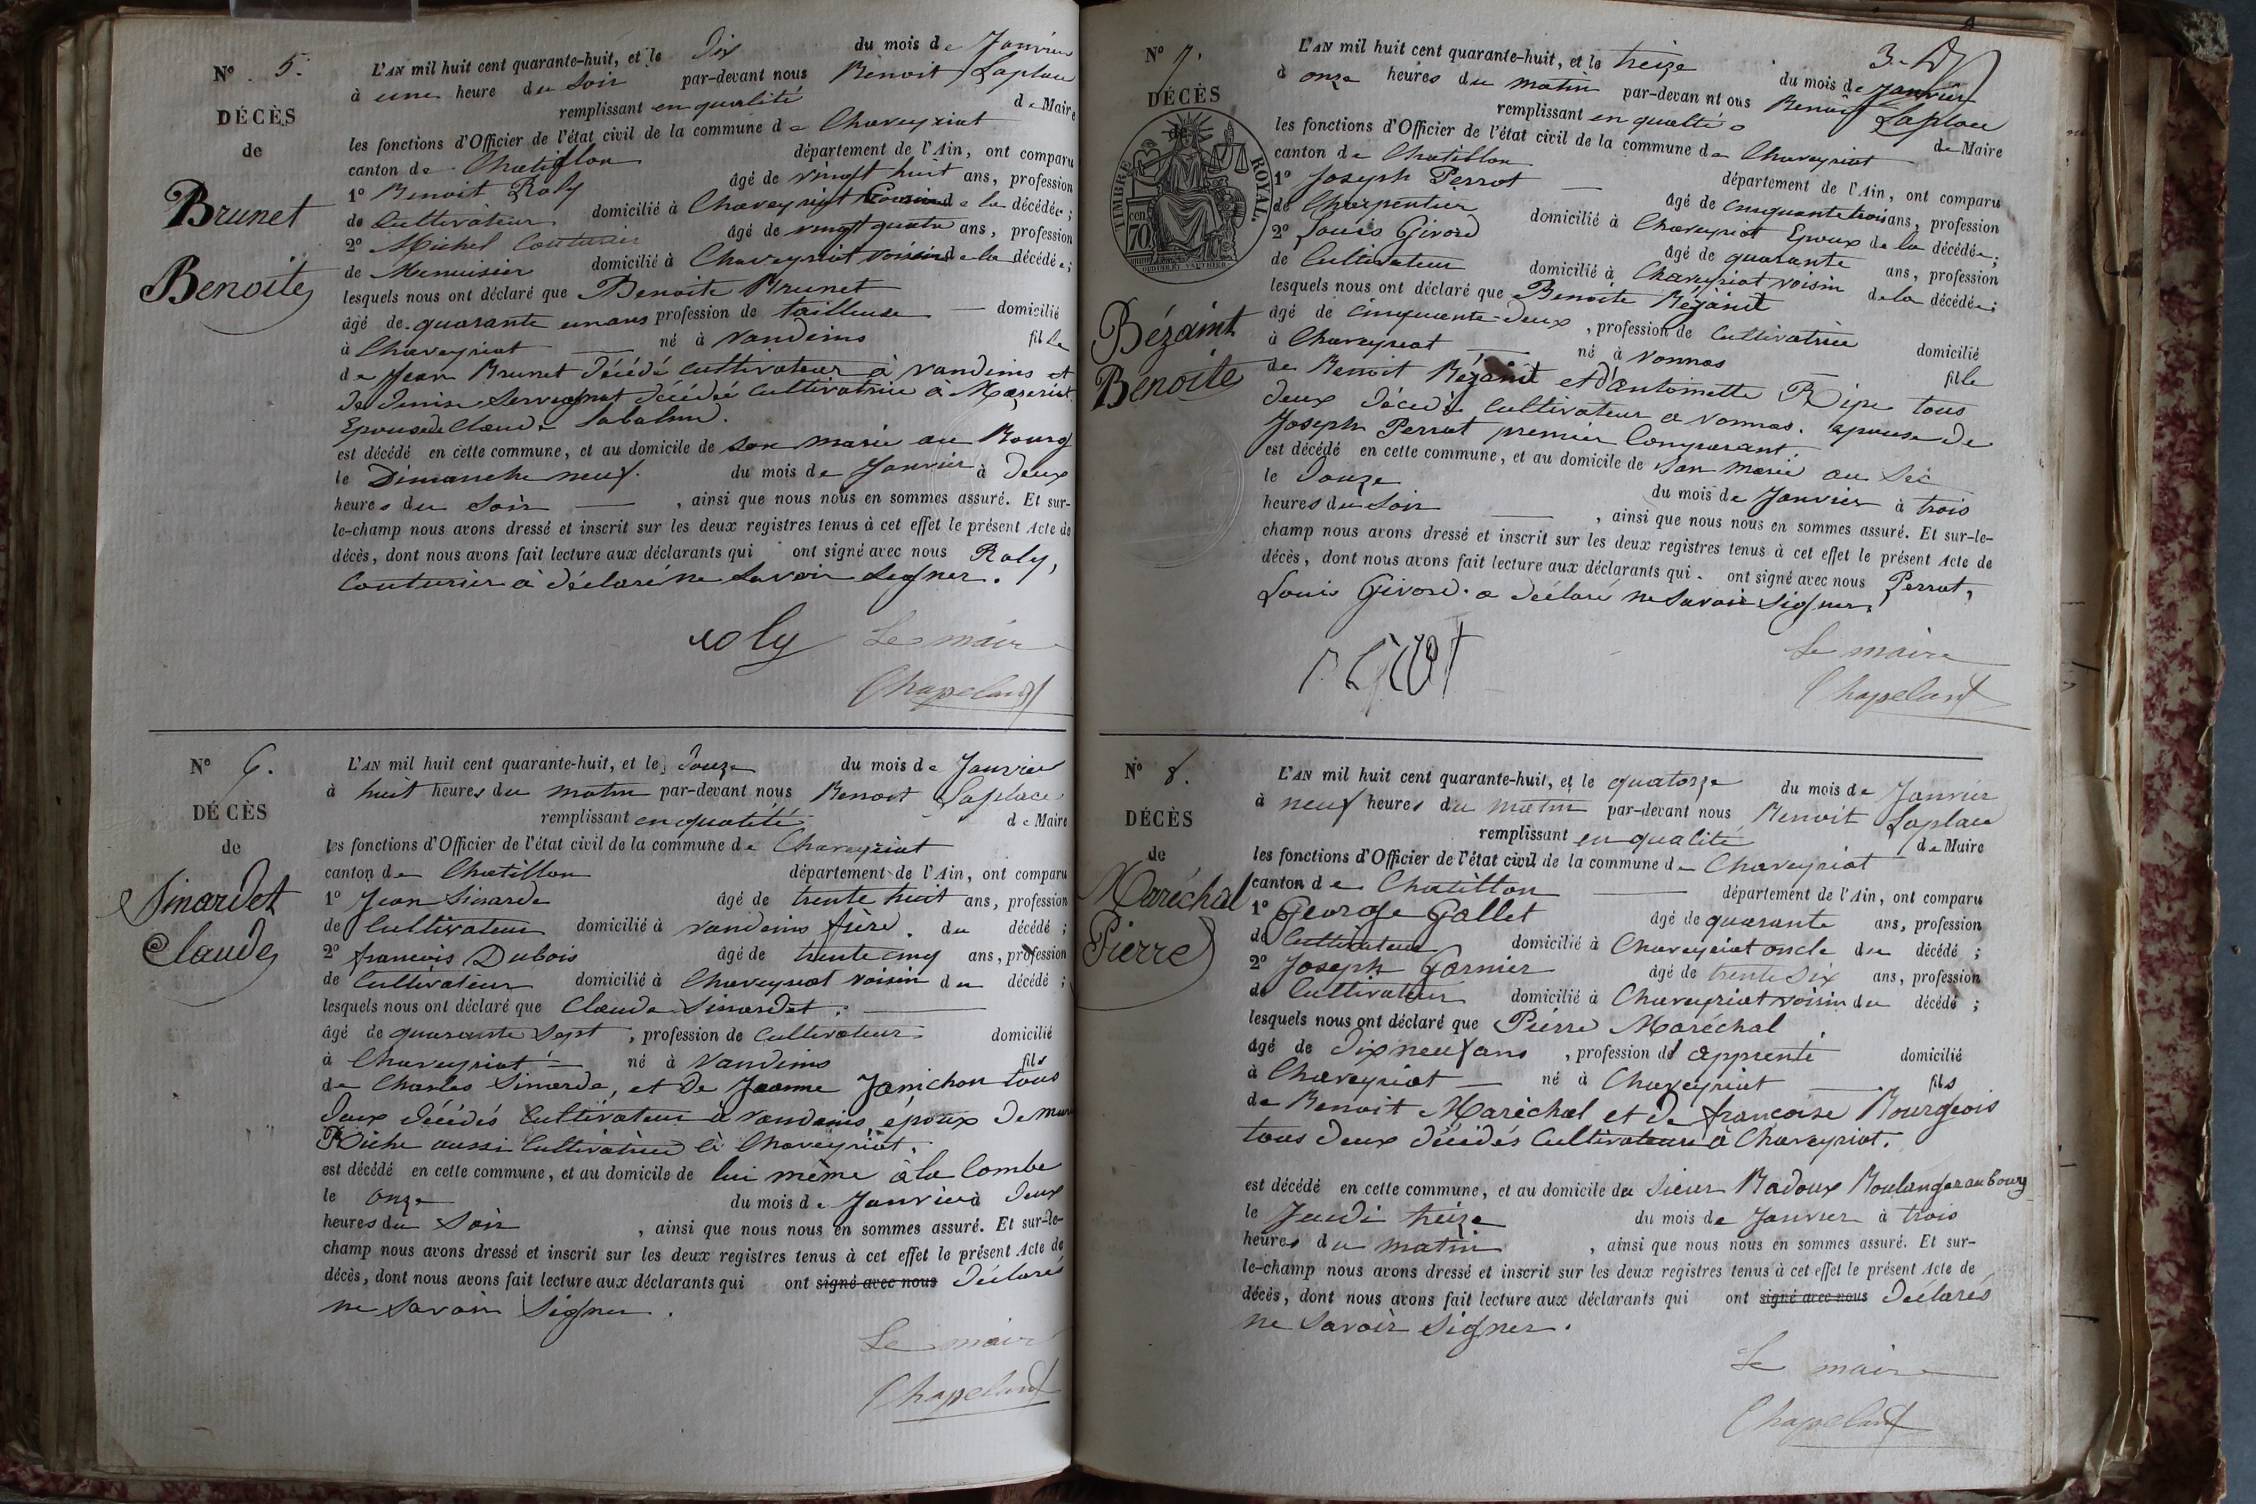 N° 5.
DÉCÈS
de
Brunet
Benoite
L'AN mil huit cent quarante-huit, et le Dix du mois de Janvier
à une heure du Soir par-devant nous Benoit Laplace
remplissant en qualité de Maire
les fonctions d'Officier de l'état civil de la commune de Chaveyriat
canton de Chatillon département de l'Ain, ont comparu
1° Benoit Roly âgé de vingt huit ans, profession
de Cultivateur domicilié à Chaveyriat Cousin de la décédée ;
2° Michel Couturier âgé de vingt quatre ans, profession
de Menuisier domicilié à Chaveyriat voisin de la décédée ;
lesquels nous ont déclaré que Benoite Brunet
âgé de quarante un ans profession de tailleuse domicilié
à Chaveyriat né à Vandeins fille
de Jean Brunet Décédé cultivateur à Vandeins et
de Denise Servignat Décédée Cultivatrice à Mezeriat.
Epouse de Claude Sabalin.
est décédé en cette commune, et au domicile de son marie au Bourg
le Dimanche neuf. du mois de Janvier à Deux
heures du Soir , ainsi que nous nous en sommes assuré. Et sur-
le-champ nous avons dressé et inscrit sur les deux registres tenus à cet effet le présent Acte de
décès, dont nous avons fait lecture aux déclarants qui ont signé avec nous Roly,
Couturier à Déclaré ne Savoir Signer.
roly Le maire
Chapeland
N° 6.
DÉCÈS
de
Sinardet
Claude
L'AN mil huit cent quarante-huit, et le Douze du mois de Janvier
à huit heures du matin par-devant nous Benoit Laplace
remplissant en qualité de Maire
les fonctions d'Officier de l'état civil de la commune de Chaveyriat
canton de Chatillon département de l'Ain, ont comparu
1° Jean Sinarde âgé de trente huit ans, profession
de Cultivateur domicilié à Vandeins frère. du décédé ;
2° francois Dubois âgé de trente cinq ans, profession
de Cultivateur domicilié à Chaveyriat voisin du décédé ;
lesquels nous ont déclaré que Claude Sinardet.
âgé de quarante Sept , profession de Cultivateur domicilié
à Chaveyriat né à Vandeins fils
de Charles Sinarde, et de Jeanne Janichon tous
Deux Décédés Cultivateur à Vandeins, époux de
Riche aussi Cultivatrice à Chaveyriat.
est décédé en cette commune, et au domicile de lui même à la Combe
le onze du mois de Janvier à Deux
heures du Soir , ainsi que nous nous en sommes assuré. Et sur-le-
champ nous avons dressé et inscrit sur les deux registres tenus à cet effet le présent Acte de
décès, dont nous avons fait lecture aux déclarants qui ont signé avec nous Déclarés
ne Savoir Signer.
Le maire
Chapeland
3.
N° 7.
DÉCÈS
de
TIMBRE ROYAL.
70
Bézaint
Benoite
L'AN mil huit cent quarante-huit, et le treize du mois de Janvier
à onze heures du matin par-devan nt ous Benoit Laplace
remplissant en qualité de Maire
les fonctions d'Officier de l'état civil de la commune de Chaveyriat
canton de Chatillon département de l'Ain, ont comparu
1° Joseph Perrot âgé de cinquante trois ans, profession
de Charpentier domicilié à Chaveyriat Epoux de la décédée ;
2° Louis Givord âgé de quarante ans, profession
de Cultivateur domicilié à Chaveyriat voisin de la décédée ;
lesquels nous ont déclaré que Benoite Bézaint
âgé de Cinquante-Deux , profession de Cultivatrice domicilié
à Chaveyriat né à Vonnas fille
de Benoit Bézaint et d'antoinette Ripe tous
Deux Décédé Cultivateur a Vonnas. Epouse de
Joseph Perrot premier Comparant.
est décédé en cette commune, et au domicile de Son Marie au Sec
le Douze du mois de Janvier à trois
heures du Soir , ainsi que nous nous en sommes assuré. Et sur-le-
champ nous avons dressé et inscrit sur les deux registres tenus à cet effet le présent Acte de
décès, dont nous avons fait lecture aux déclarants qui. ont signé avec nous Perrot,
Louis Givord. a Déclaré ne Savoir Signer.
Le maire
Chapeland
N° 8.
DÉCÈS
de
Maréchal
Pierre
L'AN mil huit cent quarante-huit, et le quatorze du mois de Janvier
à neuf heures du matin par-devant nous Benoit Laplace
remplissant en qualité de Maire
les fonctions d'Officier de l'état civil de la commune de Chaveyriat
canton de Chatillon département de l'Ain, ont comparu
1° George Gallet âgé de quarante ans, profession
de Cultivateur domicilié à Chaveyriat oncle du décédé ;
2° Joseph Garnier âgé de trente Six ans, profession
de Cultivateur domicilié à Chaveyriat voisin du décédé ;
lesquels nous ont déclaré que Piérre Maréchal
âgé de Dix neuf ans , profession d'apprenti domicilié
à Chaveyriat né à Chaveyriat fils
de Benoit Maréchal et de francoise Bourgeois
tous Deux Décédés Cultivateurs à Chaveyriat.
est décédé en cette commune, et au domicile du Sieur Badoux Boulanger au bourg
le Jeudi treize du mois de Janvier à trois
heures du matin , ainsi que nous nous en sommes assuré. Et sur-
le-champ nous avons dressé et inscrit sur les deux registres tenus à cet effet le présent Acte de
décès, dont nous avons fait lecture aux déclarants qui ont signé avec nous Déclarés
ne Savoir Signer.
Le maire
Chapeland